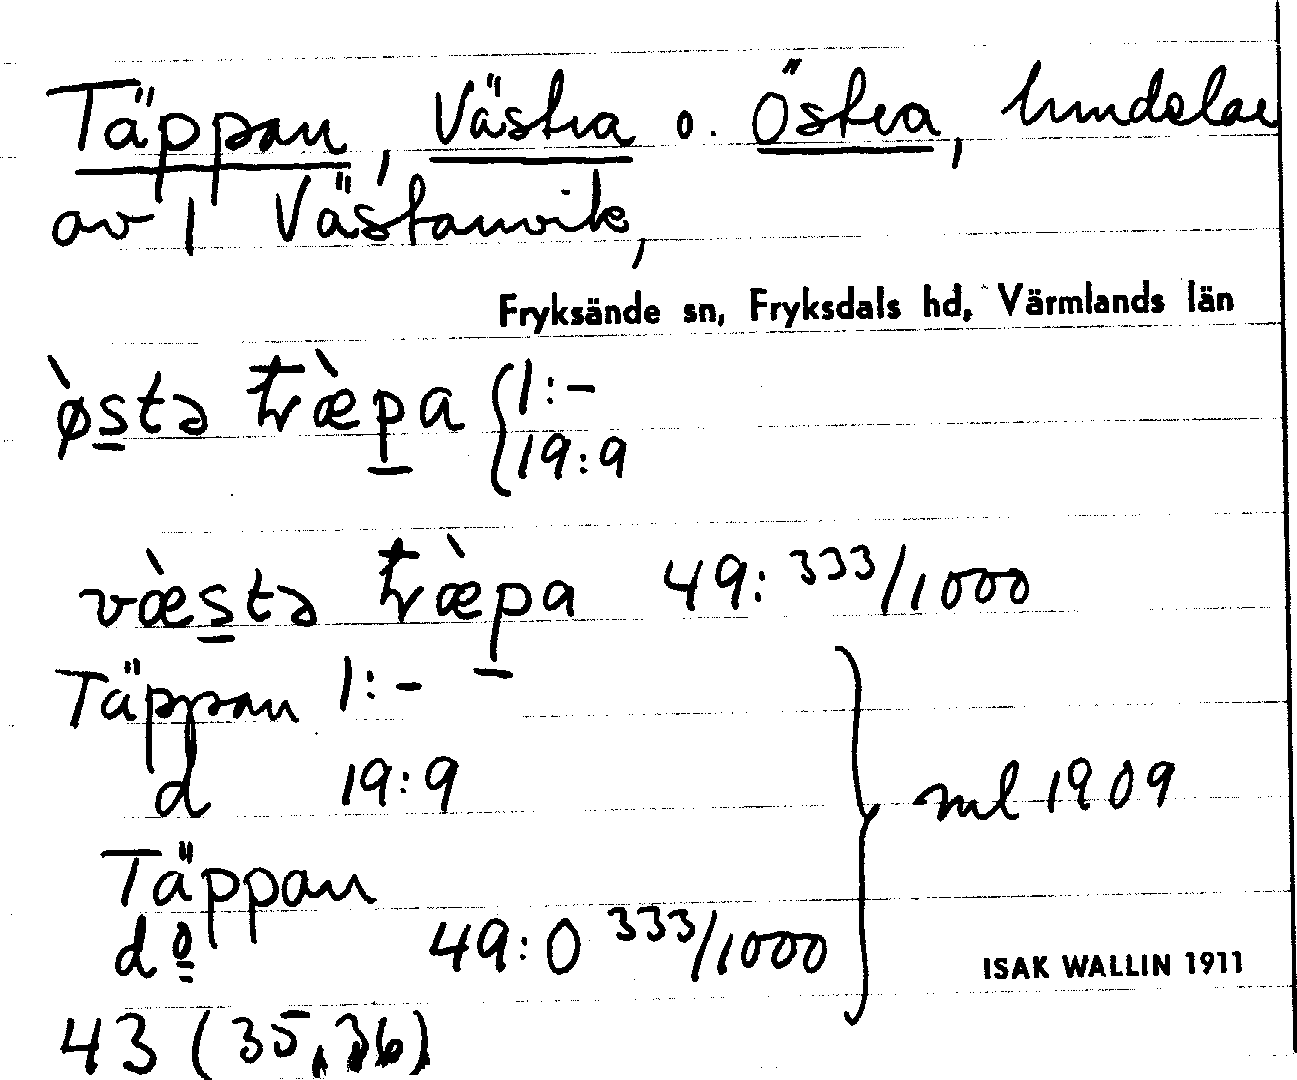 Täppan, Västra o. Östra, hmdelar
av 1 Västanvik,
Fryksände sn, Fryksdals hd, Värmlands län
ø̀stə træ̀pa {1:-
19:9
væ̀stə træ̀pa 49:333/1000
Täppan 1:-
d 19:9
} ml 1909
Täppan
do 49:0 333/1000
ISAK WALLIN 1911
43 (35, 36)